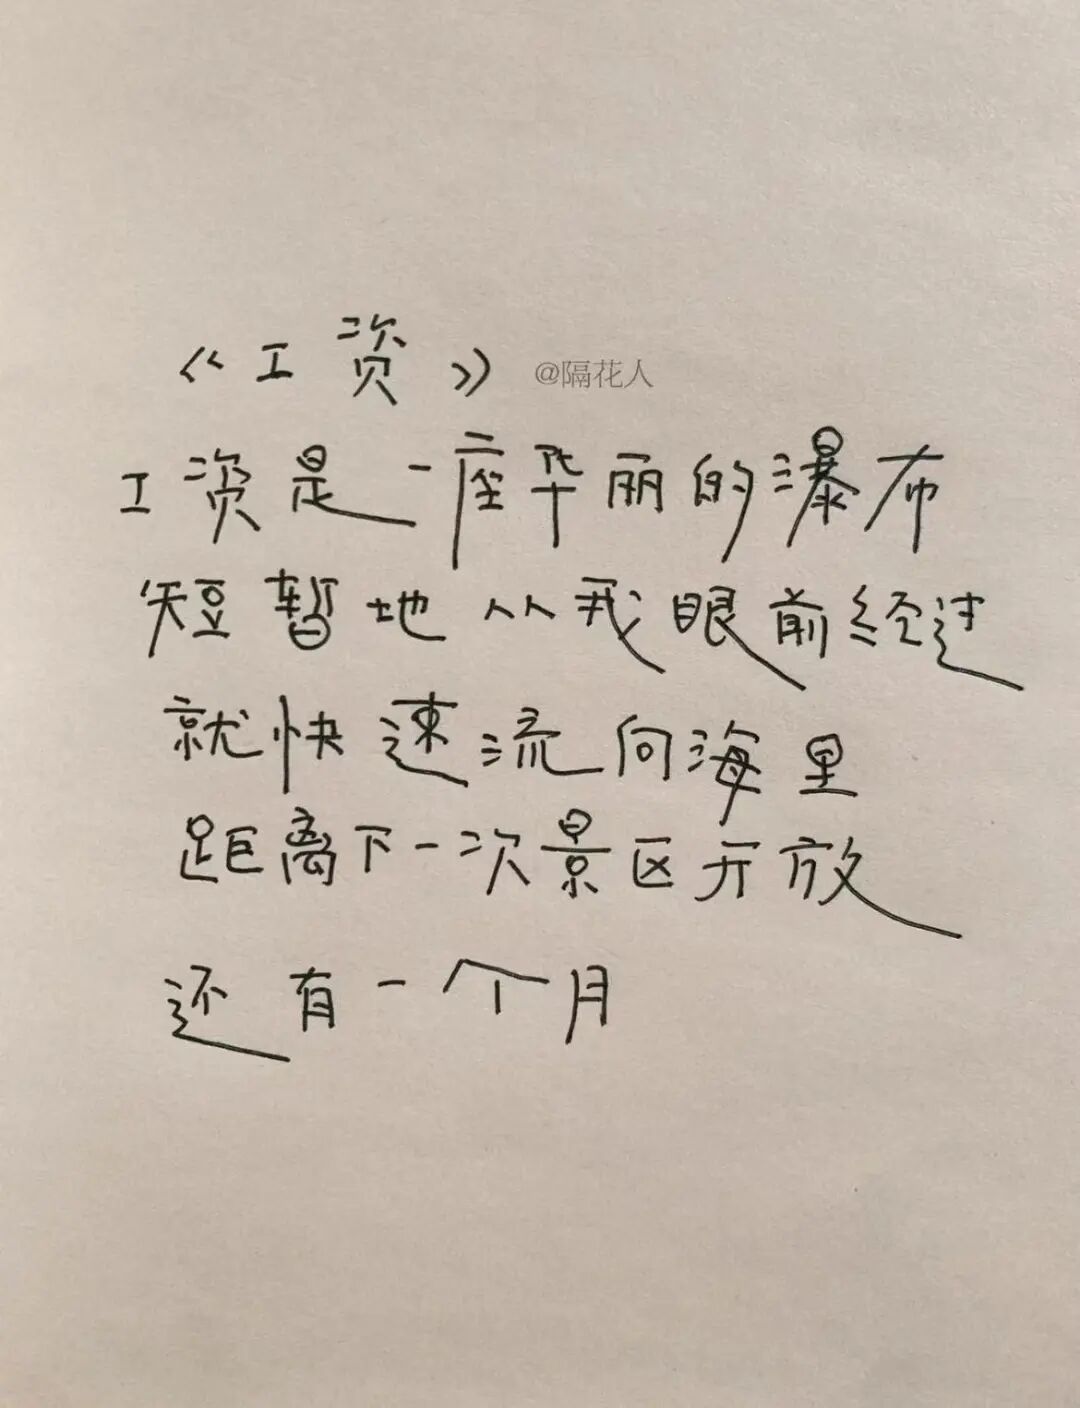 《工资》 @隔花人
工资是一座华丽的瀑布
短暂地从我眼前经过
就快速流向海里
距离下一次景区开放
还有一个月